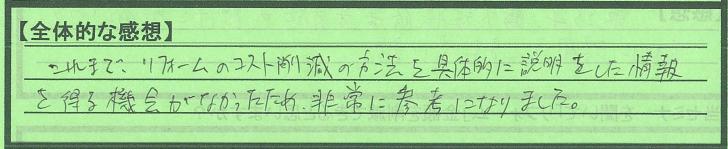 【全体的な感想】
これまで、リフォームのコスト削減の方法を具体的に説明をした情報
を得る機会がなかったため、非常に参考になりました。